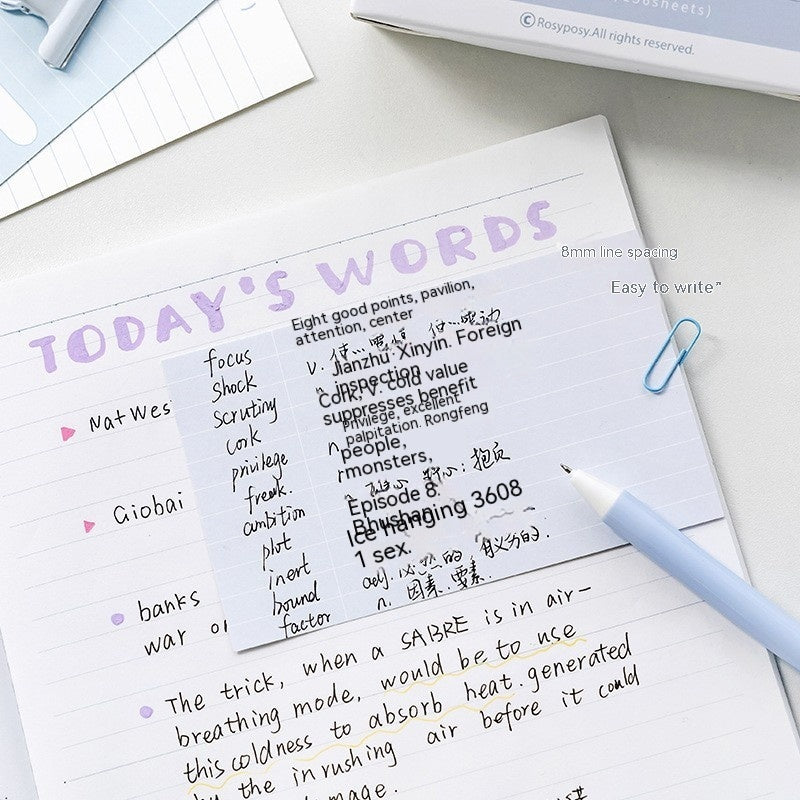 sheets)
©Rosyposy.All rights reserved.
TODAY'S WORDS
8mm line spacing
Easy to write”
Eight good points, pavilion,
attention, center
focus
shock v. 使…
Jianzhu. Xinyin. Foreign
inspection
Scrutiny n.
Cork, V. cold value
suppresses benefit
cork
Privilege, excellent
palpitation. Rongfeng
privilege n.
people,
monsters,
freak.
ambition 抱负
Episode 8.
Bhushan
plot
Ice hanging 3608
1 sex.
inert
bound adj. 必然的, 有义务的.
factor n. 因素. 要素.
NatWes
Giobai
banks
war or
The trick, when a SABRE is in air-
breathing mode, would be to use
this coldness to absorb heat generated
by the inrushing air before it could
mage.